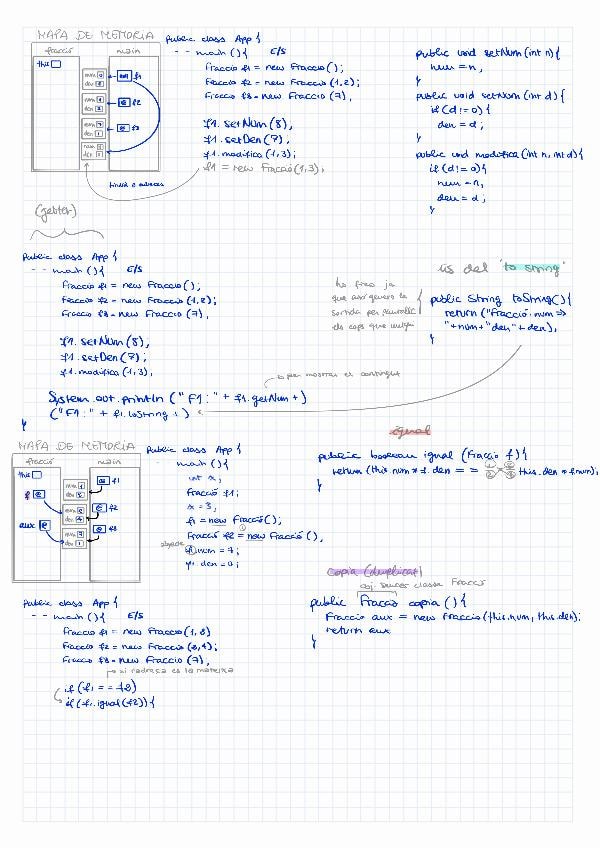 MAPA DE MEMÒRIA
fracció main
this
num 0
den
f1
num 1
den 2
f2
num 7
den 1
f3
num
den
public class App {
-- main () { E/S
Fraccio f1 = new Fraccio();
Fraccio f2 = new Fraccio(1,2);
Fraccio f3 = new Fraccio (7),
f1. setNum (8),
f1. setDen (7);
f1. modifica (1,3);
f1 = new Fracció (1,3),
public void setNum (int n) {
num = n,
}
public void setNum (int d) {
if (d != 0) {
den = d;
}
public void modifica (int n, int d) {
if (d != 0) {
num = n,
den = d;
}
(getter)
public class App {
-- main () { E/S
Fraccio f1 = new Fraccio();
Fraccio f2 = new Fraccio(1,2);
Fraccio f3 = new Fraccio (7),
f1. setNum (8),
f1. setDen (7);
f1. modifica (1,3),
per mostrar el contingut
System.out.println ("F1:" + f1.getNum +)
("F1:" + f1.toString ;)
}
ús del "to string"
ho fico ja
que així genero la
sortida per pantalla
els cops que vulgui
public String toString() {
return ("Fracció: num =>
"+num+ "den" + den),
}
MAPA DE MEMÒRIA
fracció main
this
f
aux
num 1
den
f1
num
den
f2
num
den 1
f3
public class App {
- main () {
int x,
fracció f1;
x = 3,
f1 = new Fracció();
Fracció f2 = new Fracció (),
objecte f1.num = 7;
f1. den = 0;
igual
public boolean igual (Fraccio f) {
return (this.num * f.den == this.den * f.num);
}
copia (duplicat)
obj. classe Fracció
public Fracció copia () {
Fraccio aux = new Fraccio (this.num, this.den);
return aux
}
public class App {
-- main () { E/S
Fraccio f1 = new Fraccio (1,8)
Fraccio f2 = new Fraccio (2,4);
Fraccio f3 = new Fraccio (7),
si l'adreça es la mateixa
if (f1 == f2)
if (f1. igual (f2)) {